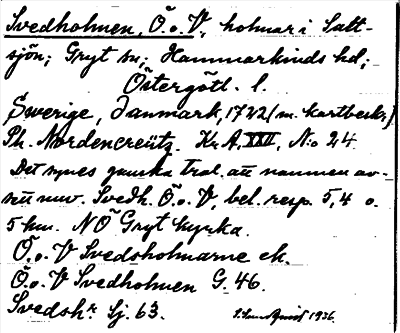 Svedholmen, Ö. o. V., holmar i Salt-
sjön; Gryt sn; Hammarkinds hd;
Östergötl. l.
Swerige, Danmark, 1722 (m. kartbeskr.)
Ph. Nordencreütz. Kr. A. XXII, N:o 24
Det synes ganska trol. att namnen av-
sett nuv. Svedh. Ö. o. V, bel. resp. 5,4 o.
5 km. NÖ Gryt kyrka.
Ö. o. V Svedsholmarne ek.
Ö. o. V Svedholmen G. 46.
Svedsh:r Sj 63.
1936.